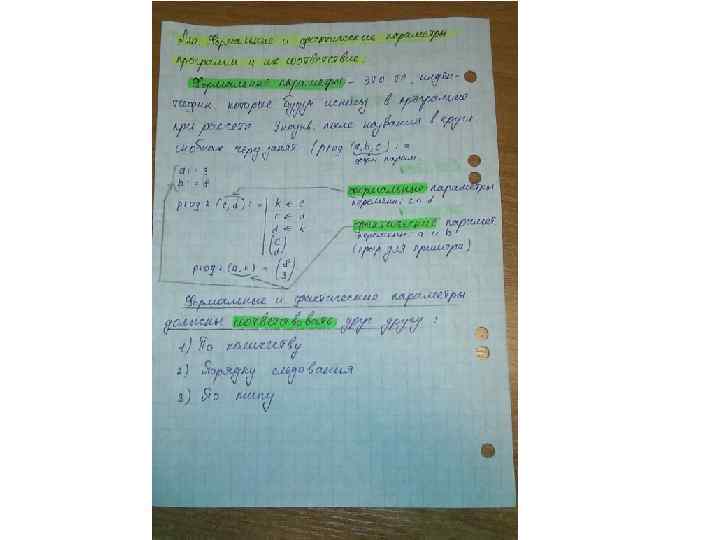 Формальные и фактические параметры
программ и их соответствие.
Формальные параметры – это те, иден-
которые будут использ. в программе
при расчёте после названия в кругл
скобках через запят. (prog (a,b,c) :=
форм парам.
a := 3
b := 8
prog 2 (c,d) := k ← c
c ← d
d ← k
(c
d)
формальные параметры
перемен. c и d
фактические парамет.
перемен. a и b
(прогр для примера)
= (8
3)
Формальные и фактические параметры
должны соответствовать друг другу:
1) По количеству
2) Порядку следования
3) По типу